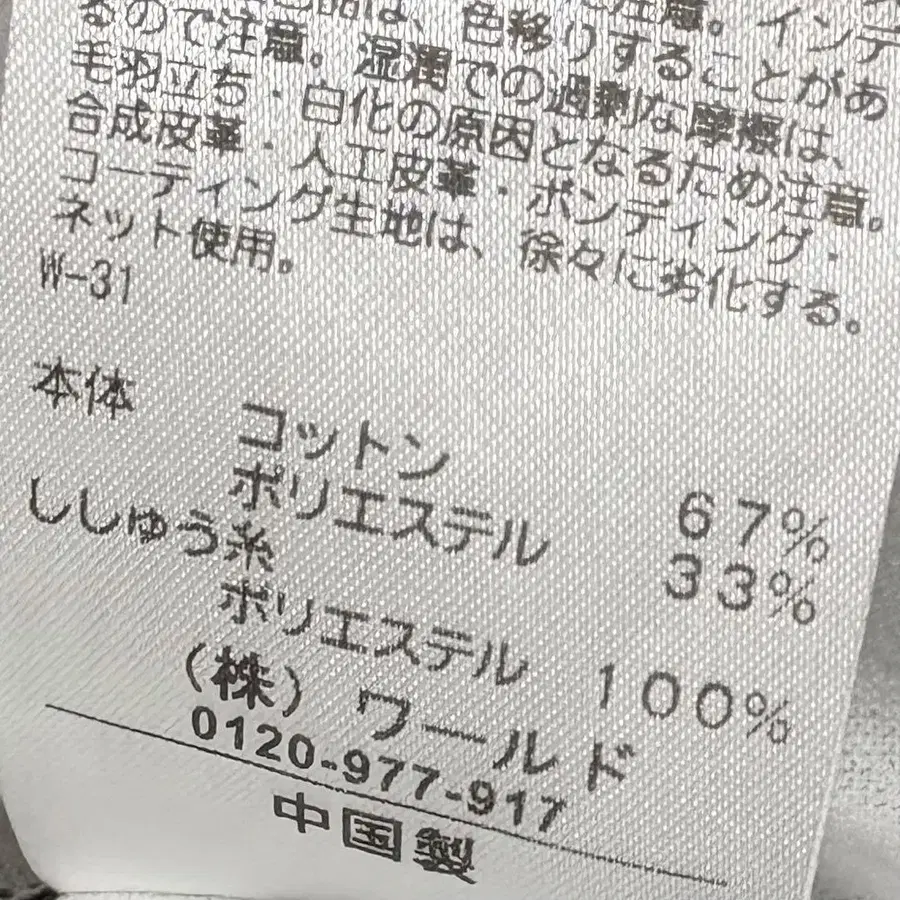 品は、色移りすることがあ
るので注意。湿潤での過剰な摩擦は、
毛羽立ち・白化の原因となるため注意。
合成皮革・人工皮革・ボンディング・
コーティング生地は、徐々に劣化する。
ネット使用。
W-31
本体
コットン 67%
ポリエステル 33%
ししゅう糸
ポリエステル 100%
(株)ワールド
0120-977-917
中国製